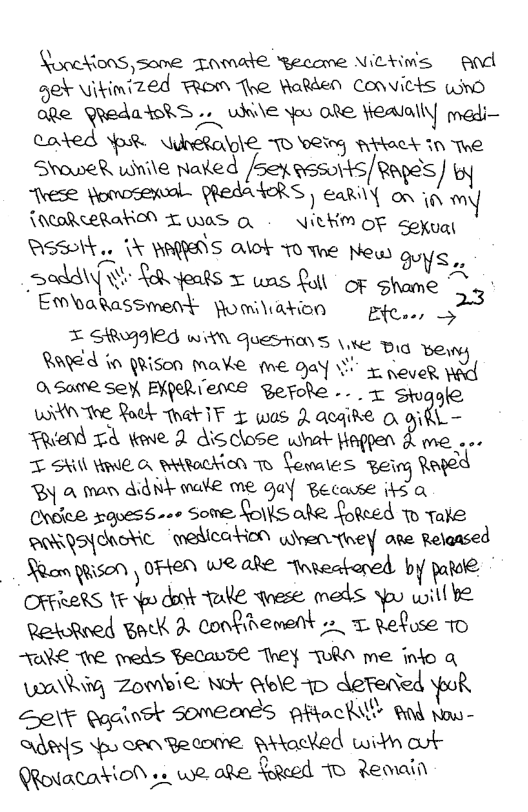 functions, some Inmate Become victim's AND
get vitimized From The Harden convicts who
are predators.. while you are Heavally medi-
cated your vulnerable to being Attact in The
Shower while Naked /sex Assults/Rape's/ by
These Homosexual predators, earily on in my
incarceration I was a victim OF sexual
Assult.. it Happen's alot to The New guys..
saddly!!! for years I was full OF shame
Embarassment Humiliation Etc... → 23
I struggled with questions like Did Being
Rape'd in prison make me gay!!! I never HAD
a same sex Experience Before... I stuggle
with The fact that if I was 2 acqire a girl-
Friend I'd Have 2 disclose what Happen 2 me...
I still Have a Attraction to females Being Rape'd
By a man didn't make me gay Because its a
choice I guess... some folks are forced to take
Antipsychotic medication when they are Released
from prison, OFten we are Threatened by parole
OFFicers if you don't take these meds you will be
Returned Back 2 confinement.. I Refuse TO
take The meds Because They Turn me into a
walking zombie Not Able to defened your
Self Against someone's Attack!!! And Now-
adays you can Become Attacked with out
provacation.. we are forced to Remain